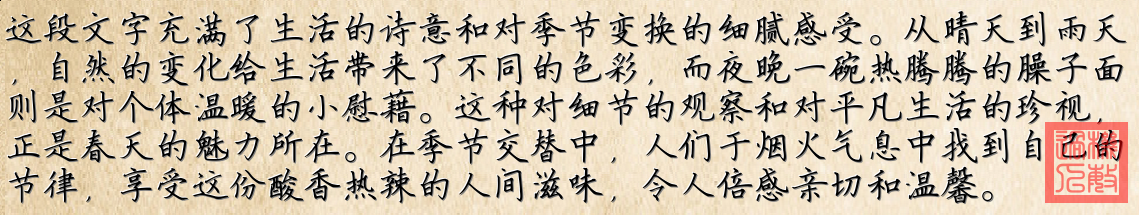 这段文字充满了生活的诗意和对季节变换的细腻感受。从晴天到雨天
，自然的变化给生活带来了不同的色彩，而夜晚一碗热腾腾的臊子面
则是对个体温暖的小慰藉。这种对细节的观察和对平凡生活的珍视，
正是春天的魅力所在。在季节交替中，人们于烟火气息中找到自己的
节律，享受这份酸香热辣的人间滋味，令人倍感亲切和温馨。